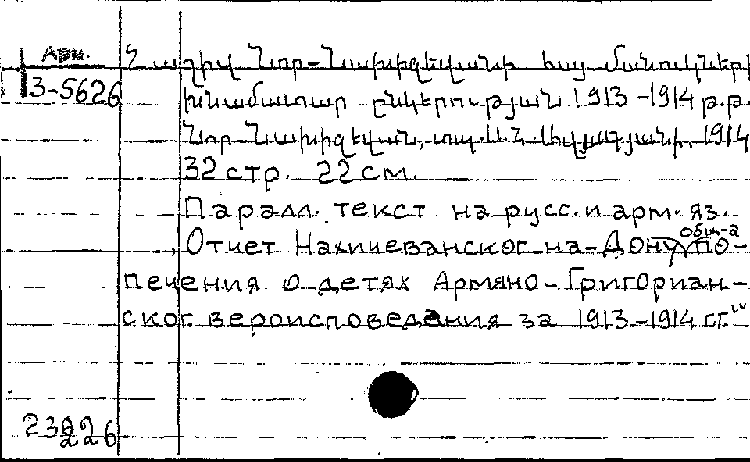 Арм.
3-5626
Հաշիվ Նոր-Նախիջեվանի հայ մանուկների
խնամատար ընկերության 1913-1914 թ.թ.
Նոր Նախիջեվան, տպ. 1914
32 стр. 22 см.
Паралл. текст на русс. и арм. яз.
общ-а
Отчет Нахичеванског-на-Дону по-
печения о детях Армяно-Григориан-
ског вероисповедания за 1913-1914 гг.